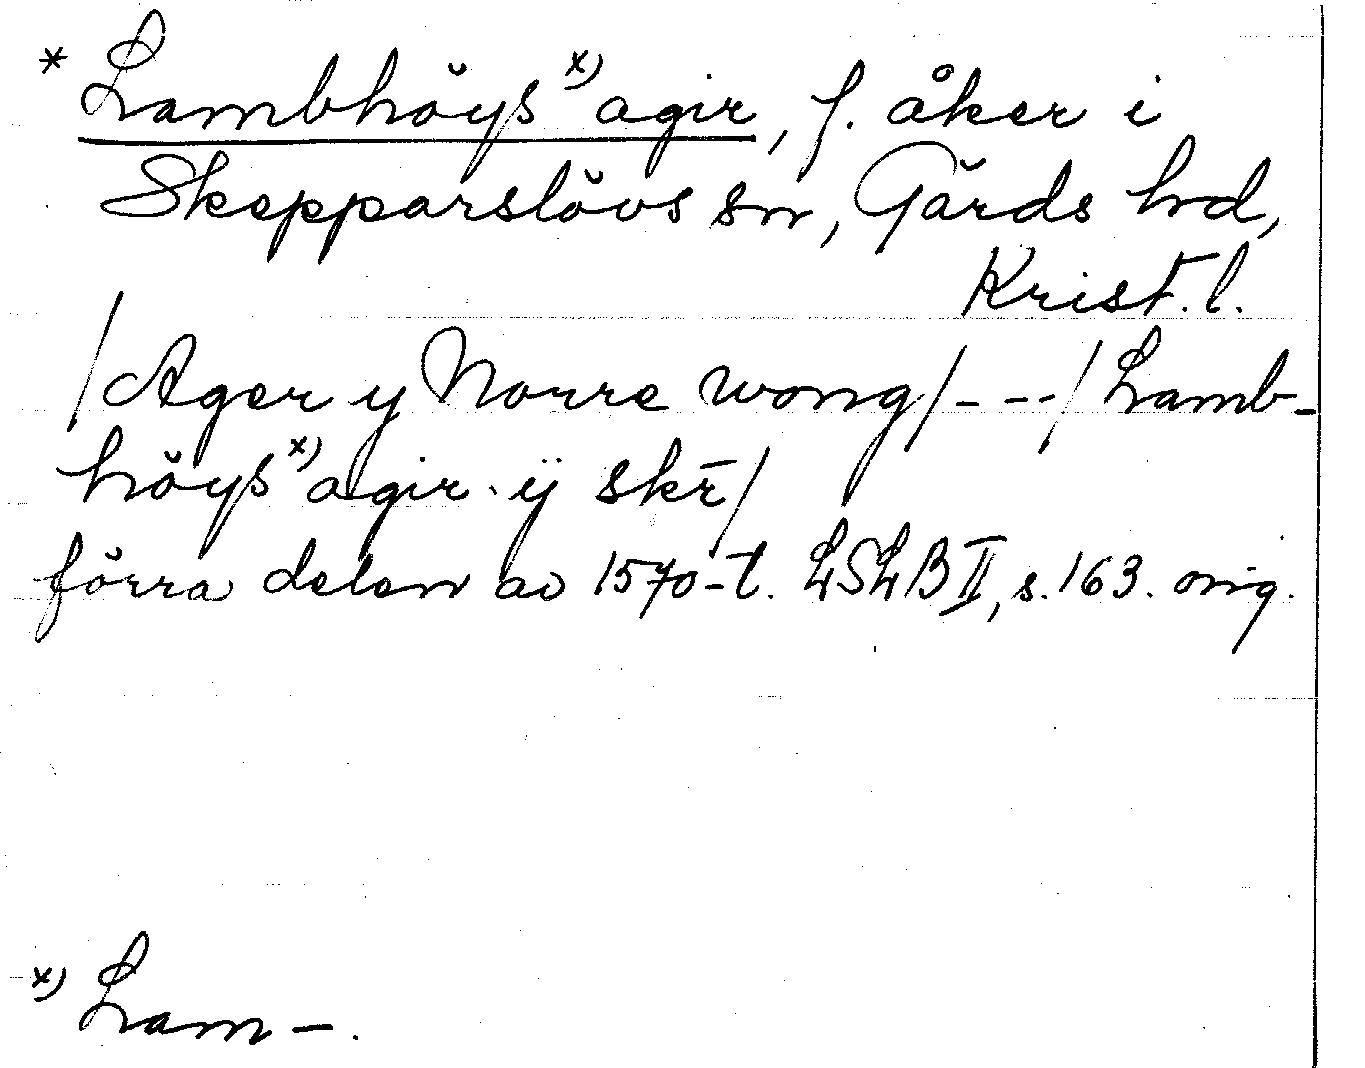 * Lambhöys x) agir, f. åker i
Skepparslövs sn, Gärds hd,
Krist. l.
/Ager y Norre wong/---/Lamb-
höys x) agir ÿ skr̄/
förra delen av 1570-t. LSLB II, s. 163. orig.
x) Lam-.